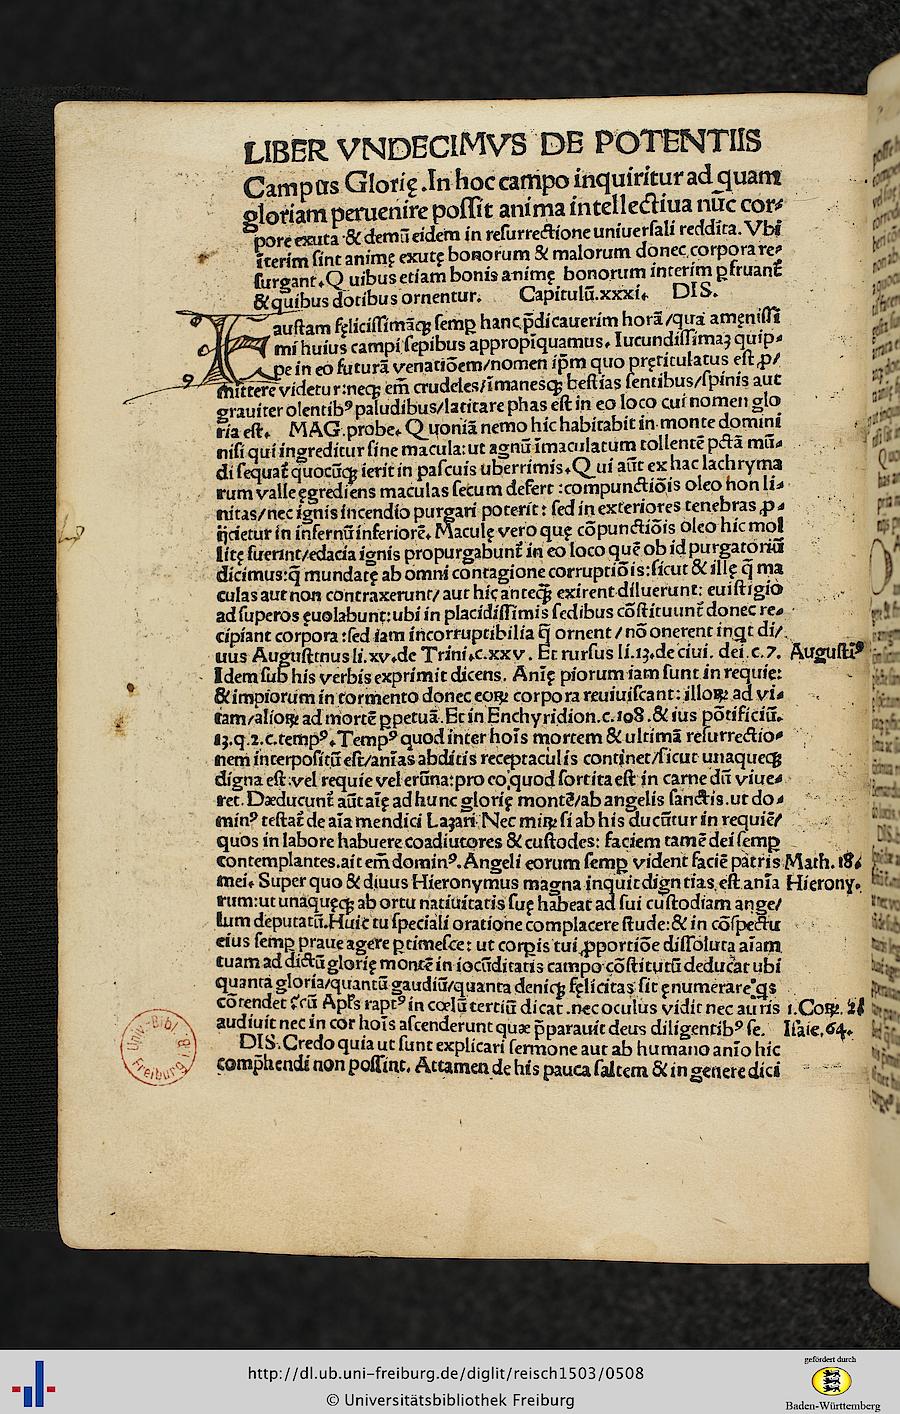 LIBER VNDECIMVS DE POTENTIIS
Campus Glorię .In hoc campo inquiritur ad quam
gloriam peruenire possit anima intellectiua nūc cor⸗
pore exuta & demū eidem in resurrectione uniuersali reddita. Vbi
īterim sint animę exutę bonorum & malorum donec corpora re⸗
surgant. Q uibus etiam bonis animę bonorum interim ꝑfruant᷑
& quibus dotibus ornentur. Capitulū.xxxi. DIS.
Faustam fęlicissimāqꝫ semꝑ hanc p̄dicauerim horā/qua amęnissi
mi huius campi sepibus appropīquamus. Iucundissimaꝫ quip⸗
pe in eo futurā venatiōem/nomen ip̄m quo prętitulatus est ꝓ/
mittere videtur:neqꝫ em̄ crudeles/īmanesqꝫ bestias sentibus/spinis aut
grauiter olentibꝰ paludibus/latitare phas est in eo loco cui nomen glo
ria est. MAG.probe. Q uoniā nemo hic habitabit in monte domini
nisi qui ingreditur sine macula: ut agnū īmaculatum tollentē pctā mū⸗
di sequat᷑ quocūqꝫ ierit in pascuis uberrimis. Q ui aūt ex hac lachryma
rum valle ęgrediens maculas secum defert :compunctiōis oleo non li⸗
nitas/nec ignis incendio purgari poterit: sed in exteriores tenebras ꝓ⸗
ijcietur in infernū inferiorē. Maculę vero quę cōpunctiōis oleo hic mol
litę fuerint/edacia ignis propurgabunt᷑ in eo loco quē ob id purgatoriū
dicimus:q̄ mundatę ab omni contagione corruptiōis:sicut & illę q̄ ma
culas aut non contraxerunt/ aut hic anteqꝫ exirent diluerunt: euistigio
ad superos ęuolabunt:ubi in placidissimis sedibus cōstituunt᷑ donec re⸗
cipiant corpora :sed iam incorruptibilia q̄ ornent / nō onerent inqt di/
uus Augustinus li.xv.de Trini.c.xxv. Et rursus li.13.de ciui. dei.c.7. Augustīꝰ
Idem sub his verbis exprimit dicens. Anię piorum iam sunt in requie:
& impiorum in tormento donec eoꝝ corpora reuiuiscant: illoꝝ ad vi⸗
tam/alioꝝ ad mortē ꝑpetuā. Et in Enchyridion.c.108.& ius pōtificiū.
13.q.2.c.tempꝰ. Tempꝰ quod inter hoīs mortem & ultimā resurrectio⸗
nem interpositū est/anīas abditis receptaculis continet/sicut unaqueqꝫ
digna est:vel requie vel erūna:pro eo quod sortita est in carne dū viue⸗
ret. Dæducunt᷑ aūt aīę ad hunc glorię montē/ab angelis sanctis.ut do⸗
minꝰ testat᷑ de aīa mendici Lazari. Nec miꝝ si ab his ducūtur in requiē/
quos in labore habuere coadiutores & custodes: faciem tamē dei semꝑ
contemplantes.ait em̄ dominꝰ. Angeli eorum semꝑ vident faciē patris Math. 18.
mei. Super quo & diuus Hieronymus magna inquit dignitas est anīa Hierony.
rum:ut unaquęqꝫ ab ortu natiuitatis suę habeat ad sui custodiam ange/
lum deputatū.Huic tu speciali oratione complacere stude:& in cōspectu
eius semꝑ praue agere ꝑtimesce: ut corꝑis tui ꝓportiōe dissoluta aīam
tuam ad dictū glorię montē in iocūditatis campo cōstitutū deducat ubi
quanta gloria/quantū gaudiū/quanta deniqꝫ fęlicitas sit ęnumerare qs
cōtendet
cū Apl̄s raptꝰ in cœlū tertiū dicat .nec oculus vidit nec auris 1.Coꝝ. 2
audiuit nec in cor hoīs ascenderunt quæ p̄parauit deus diligentibꝰ se. Isaie.64.
DIS. Credo quia ut sunt explicari sermone aut ab humano anīo hic
comp̄hendi non possint. Attamen de his pauca saltem & in genere dici
Univ.-Bibl.
Freiburg i. B.
http://dl.ub.uni-freiburg.de/diglit/reisch1503/0508
© Universitätsbibliothek Freiburg
gefördert durch
Baden-Württemberg